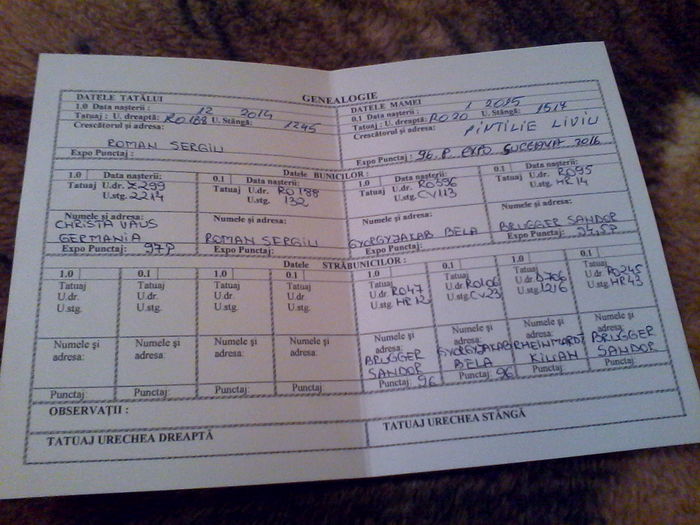 GENEALOGIE
DATELE TATĂLUI
1.0 Data nașterii : 12 2014
Tatuaj : U. dreaptă: RO188 U. Stângă: 1245
Crescătorul și adresa:
ROMAN SERGIU
Expo Punctaj :
DATELE MAMEI
0.1 Data nașterii : 1 2015
Tatuaj : U. dreaptă: RO20 U. Stângă: 1514
Crescătorul și adresa:
PINTILIE LIVIU
Expo Punctaj : 96 P EXPO SUCEAVA 2016
Datele BUNICILOR :
1.0 Data nașterii:
Tatuaj U.dr. Z299
U.stg. 2214
Numele și adresa:
CHRISTA VAUS
GERMANIA
Expo Punctaj: 97P
0.1 Data nașterii:
Tatuaj U.dr. RO188
U.stg. 132
Numele și adresa:
ROMAN SERGIU
Expo Punctaj:
1.0 Data nașterii:
Tatuaj U.dr. RO396
U.stg. CV113
Numele și adresa:
GYORGYJAKAB BELA
Expo Punctaj:
0.1 Data nașterii:
Tatuaj U.dr. RO95
U.stg. HR14
Numele și adresa:
BRUGGER SANDOR
Expo Punctaj: 97,5P
Datele STRĂBUNICILOR :
1.0
Tatuaj
U.dr.
U.stg.
Numele și
adresa:
Punctaj:
0.1
Tatuaj
U.dr
U.stg.
Numele și
adresa:
Punctaj:
1.0
Tatuaj
U.dr.
U.stg.
Numele și
adresa:
Punctaj:
0.1
Tatuaj
U.dr.
U.stg.
Numele și
adresa:
Punctaj:
1.0
Tatuaj
U.dr. RO47
U.stg. HR12
Numele și
adresa:
BRUGGER
SANDOR
Punctaj: 96
0.1
Tatuaj
U.dr. RO106
U.stg. CV23
Numele și
adresa:
GYORGYJAKAB
BELA
Punctaj: 96
1.0
Tatuaj
U.dr. D706
U.stg. 1216
Numele și
adresa:
KILIAN
Punctaj:
0.1
Tatuaj
U.dr. RO245
U.stg. HR43
Numele și
adresa:
BRUGGER
SANDOR
Punctaj:
OBSERVAȚII :
TATUAJ URECHEA DREAPTĂ
TATUAJ URECHEA STÂNGĂ